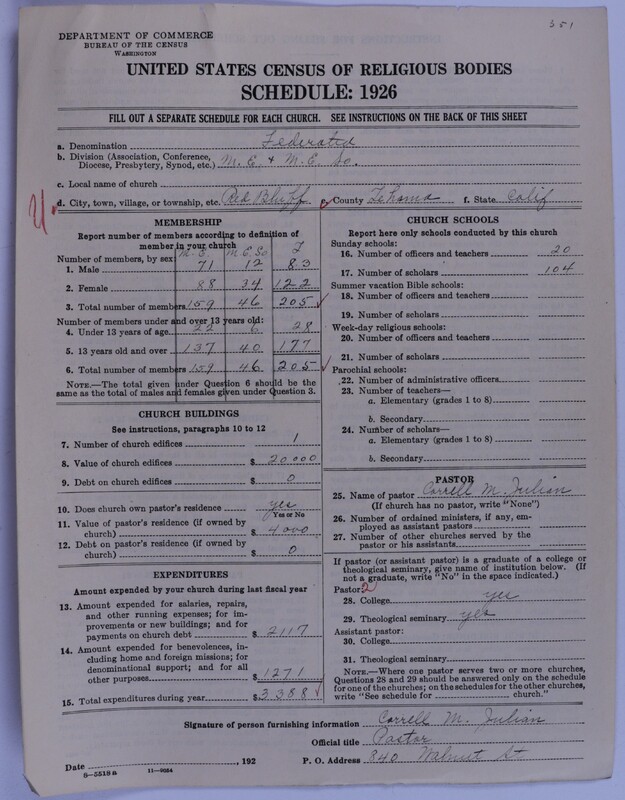 351
DEPARTMENT OF COMMERCE
BUREAU OF THE CENSUS
WASHINGTON
UNITED STATES CENSUS OF RELIGIOUS BODIES
SCHEDULE: 1926
FILL OUT A SEPARATE SCHEDULE FOR EACH CHURCH. SEE INSTRUCTIONS ON THE BACK OF THIS SHEET
a. Denomination Federated
b. Division (Association, Conference,
Diocese, Presbytery, Synod, etc.) M. E. & M. E. So.
c. Local name of church
d. City, town, village, or township, etc. Red Bluff e. County Tehama f. State Calif
MEMBERSHIP
Report number of members according to definition of
member in your church
Number of members, by sex: M. E. M. E. So T
1. Male 71 12 83
2. Female 88 34 122
3. Total number of members 159 46 205
Number of members under and over 13 years old:
4. Under 13 years of age 22 6 28
5. 13 years old and over 137 40 177
6. Total number of members 159 46 205
NOTE.—The total given under Question 6 should be the
same as the total of males and females given under Question 3.
CHURCH BUILDINGS
See instructions, paragraphs 10 to 12
7. Number of church edifices 1
8. Value of church edifices $ 20000
9. Debt on church edifices $ 0
10. Does church own pastor's residence yes
Yes or No
11. Value of pastor's residence (if owned by
church) $ 4000
12. Debt on pastor's residence (if owned by
church) $ 0
EXPENDITURES
Amount expended by your church during last fiscal year
13. Amount expended for salaries, repairs,
and other running expenses; for im-
provements or new buildings; and for
payments on church debt $ 2117
14. Amount expended for benevolences, in-
cluding home and foreign missions; for
denominational support; and for all
other purposes $ 1271
15. Total expenditures during year $ 3388
CHURCH SCHOOLS
Report here only schools conducted by this church
Sunday schools:
16. Number of officers and teachers 20
17. Number of scholars 104
Summer vacation Bible schools:
18. Number of officers and teachers
19. Number of scholars
Week-day religious schools:
20. Number of officers and teachers
21. Number of scholars
Parochial schools:
22. Number of administrative officers
23. Number of teachers—
a. Elementary (grades 1 to 8)
b. Secondary
24. Number of scholars—
a. Elementary (grades 1 to 8)
b. Secondary
PASTOR
25. Name of pastor Correll M. Julian
(If church has no pastor, write "None")
26. Number of ordained ministers, if any, em-
ployed as assistant pastors
27. Number of other churches served by the
pastor or his assistants
If pastor (or assistant pastor) is a graduate of a college or
theological seminary, give name of institution below. (If
not a graduate, write "No" in the space indicated.)
Pastor: 2
28. College yes
29. Theological seminary yes
Assistant pastor:
30. College
31. Theological seminary
NOTE.—Where one pastor serves two or more churches,
Questions 28 and 29 should be answered only on the schedule
for one of the churches; on the schedules for the other churches,
write "See schedule for church."
Signature of person furnishing information Correll M. Julian
Official title Pastor
Date , 192 P. O. Address 840 Walnut St
8—5518a 11—9054